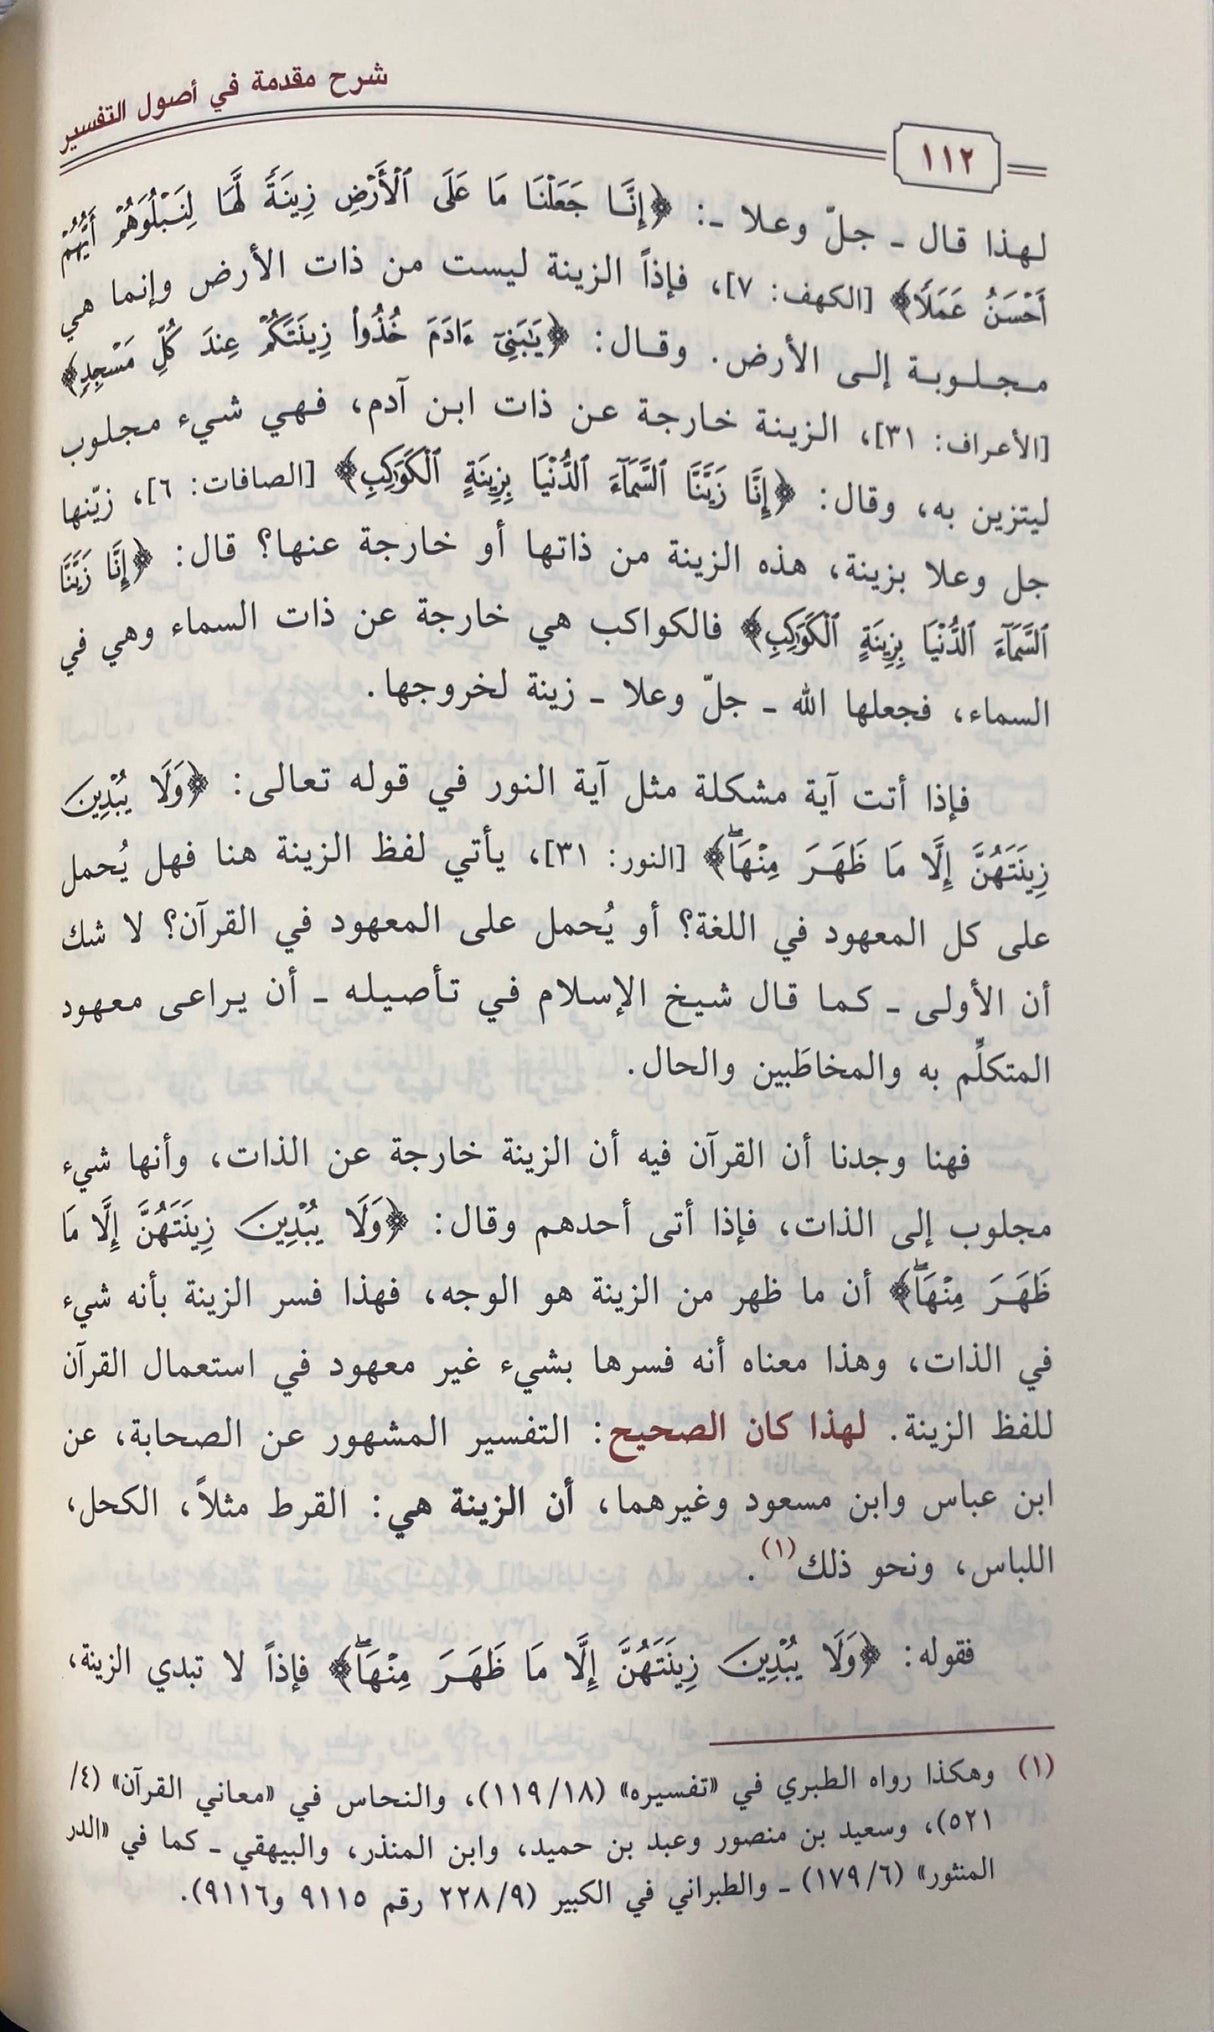 شرح مقدمة في أصول التفسير
١١٢
لهذا قال ـ جلّ وعلا ـ: ﴿إِنَّا جَعَلْنَا مَا عَلَى ٱلْأَرْضِ زِينَةً لَّهَا لِنَبْلُوَهُمْ أَيُّهُمْ
أَحْسَنُ عَمَلًا﴾ [الكهف: ٧]، فإذاً الزينة ليست من ذات الأرض وإنما هي
مجلوبة إلى الأرض. وقال: ﴿يَٰبَنِىٓ ءَادَمَ خُذُوا۟ زِينَتَكُمْ عِندَ كُلِّ مَسْجِدٍ﴾
[الأعراف: ٣١]، الزينة خارجة عن ذات ابن آدم، فهي شيء مجلوب
ليتزين به، وقال: ﴿إِنَّا زَيَّنَّا ٱلسَّمَآءَ ٱلدُّنْيَا بِزِينَةٍ ٱلْكَوَاكِبِ﴾ [الصافات: ٦]، زيّنها
جل وعلا بزينة، هذه الزينة من ذاتها أو خارجة عنها؟ قال: ﴿إِنَّا زَيَّنَّا
ٱلسَّمَآءَ ٱلدُّنْيَا بِزِينَةٍ ٱلْكَوَاكِبِ﴾ فالكواكب هي خارجة عن ذات السماء وهي في
السماء، فجعلها الله ـ جلّ وعلا ـ زينة لخروجها.
فإذا أتت آية مشكلة مثل آية النور في قوله تعالى: ﴿وَلَا يُبْدِينَ
زِينَتَهُنَّ إِلَّا مَا ظَهَرَ مِنْهَا ۖ﴾ [النور: ٣١]، يأتي لفظ الزينة هنا فهل يُحمل
على كل المعهود في اللغة؟ أو يُحمل على المعهود في القرآن؟ لا شك
أن الأولى ـ كما قال شيخ الإسلام في تأصيله ـ أن يراعى معهود
المتكلِّم به والمخاطَبين والحال.
فهنا وجدنا أن القرآن فيه أن الزينة خارجة عن الذات، وأنها شيء
مجلوب إلى الذات، فإذا أتى أحدهم وقال: ﴿وَلَا يُبْدِينَ زِينَتَهُنَّ إِلَّا مَا
ظَهَرَ مِنْهَا ۖ﴾ أن ما ظهر من الزينة هو الوجه، فهذا فسر الزينة بأنه شيء
في الذات، وهذا معناه أنه فسرها بشيء غير معهود في استعمال القرآن
للفظ الزينة. لهذا كان الصحيح: التفسير المشهور عن الصحابة، عن
ابن عباس وابن مسعود وغيرهما، أن الزينة هي: القرط مثلاً، الكحل،
اللباس، ونحو ذلك(١).
فقوله: ﴿وَلَا يُبْدِينَ زِينَتَهُنَّ إِلَّا مَا ظَهَرَ مِنْهَا ۖ﴾ فإذاً لا تبدي الزينة،
(١) وهكذا رواه الطبري في «تفسيره» (١١٩/١٨)، والنحاس في «معاني القرآن» (٤/
٥٢١)، وسعيد بن منصور وعبد بن حميد، وابن المنذر، والبيهقي ـ كما في «الدر
المنثور» (١٧٩/٦) ـ والطبراني في الكبير (٢٢٨/٩ رقم ٩١١٥ و٩١١٦).